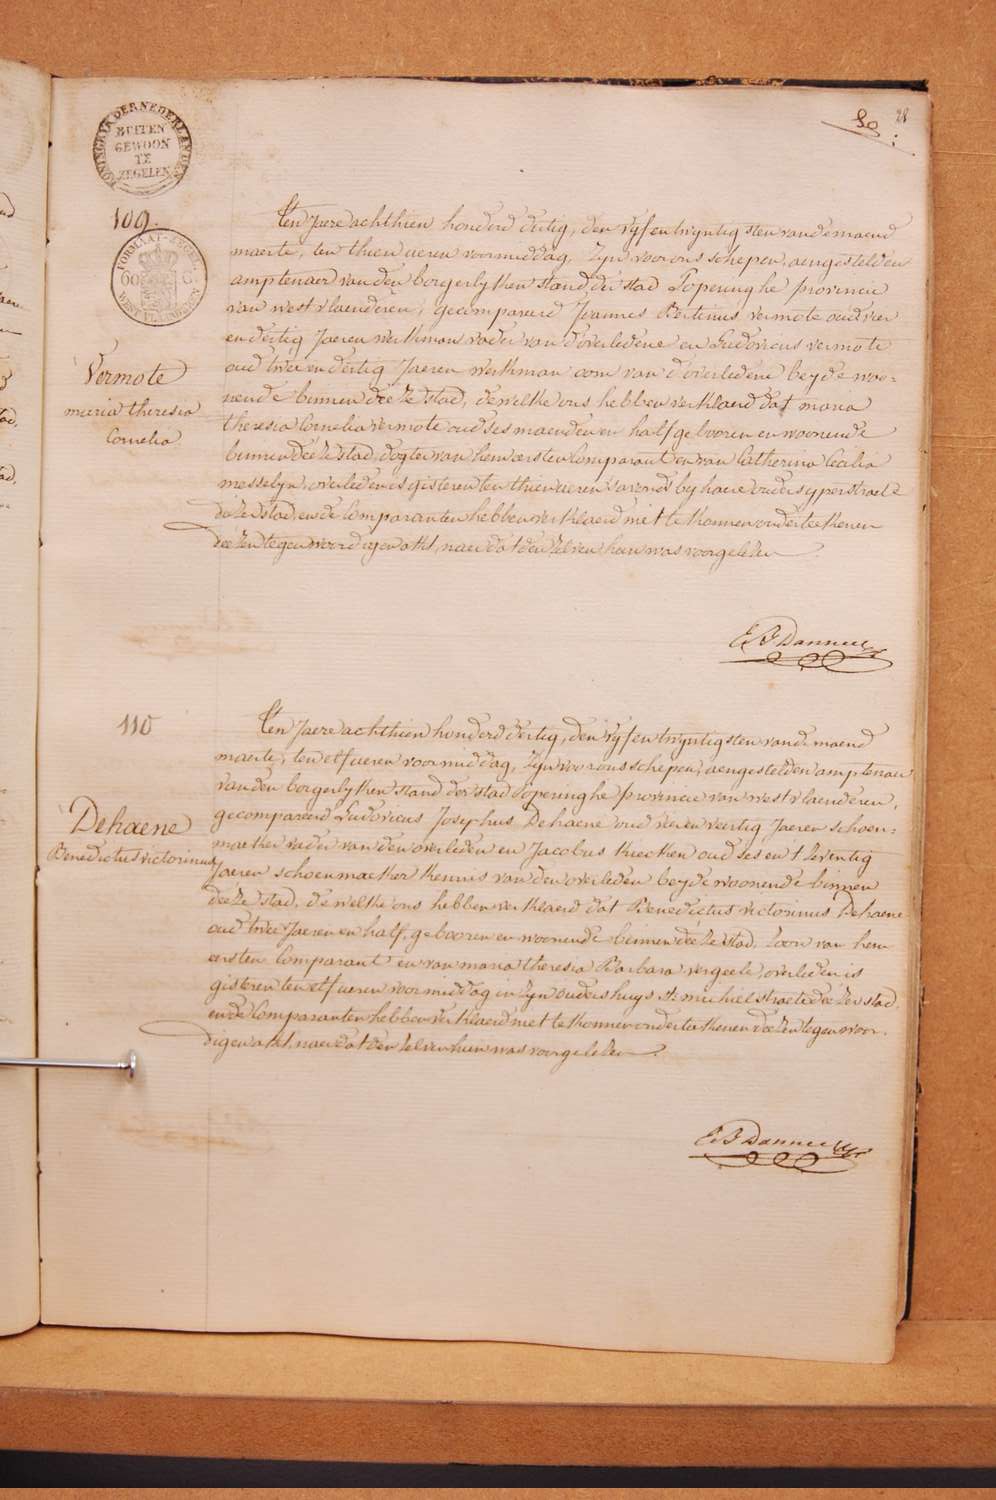 28
KONINGRYK DER NEDERLANDEN
BUITEN
GEWOON
TE
ZEGELEN
109.
FORMAAT-ZEGEL
60 C
WEST VLAENDEREN
Vermote
maria theresia
Cornelia
Ten Jaere achthien honderd dertig, den vyf en twyntigsten van de maend
maerte, ten thien ueren voormiddag, Zyn voor ons schepen, aengestelden
amptenaer van den borgerlyken stand der stad Poperinghe provincie
van westvlaenderen, gecompareerd Joannes Bertinus vermote oud vier
en dertig Jaeren werkman vader van d'overledene en Ludovicus vermote
oud twee en dertig Jaeren werkman oom van d'overledene beyde woo-
nende binnen deeze stad, dewelke ons hebben verklaerd dat maria
theresia Cornelia vermote oud ses maenden en half gebooren en woonende
binnen deeze stad, dogter van hem eersten Comparant en van Catherina Cecilia
messelyn, overleden is gisteren ten thien ueren s'avonds by haere ouders yperstraete
dezer stad, en de Comparanten hebben verklaerd niet te konnen onderteekenen
deezen tegenwoordigen akt, naer dat den zelven hun was voorgelezen.
E B Danneel
110
Dehaene
Benedictus victorinus
Ten Jaere achthien honderd dertig, den vyf en twyntigsten van de maend
maerte, ten elf ueren voormiddag, Zyn voor ons schepen, aengestelden amptenaer
van den borgerlyken stand der stad Poperinghe provincie van westvlaenderen,
gecompareerd Ludovicus Josephus Dehaene oud vier en veertig Jaeren schoen-
maeker vader van den overleden en Jacobus Kiecken oud ses en t'seventig
Jaeren schoenmaeker kennis van den overleden beyde woonende binnen
deeze stad, dewelke ons hebben verklaerd dat Benedictus victorinus Dehaene
oud twee Jaeren en half, gebooren en woonende binnen deeze stad, Zoon van hem
eersten Comparant en van maria theresia Barbara vergeele, overleden is
gisteren ten elf ueren voormiddag in zyn ouders huys St. michiel straete deezer stad
en de Comparanten hebben verklaerd niet te konnen onderteekenen deezen tegenwoor-
digen akt, naer dat den zelven hun was voorgelezen.
E B Danneel